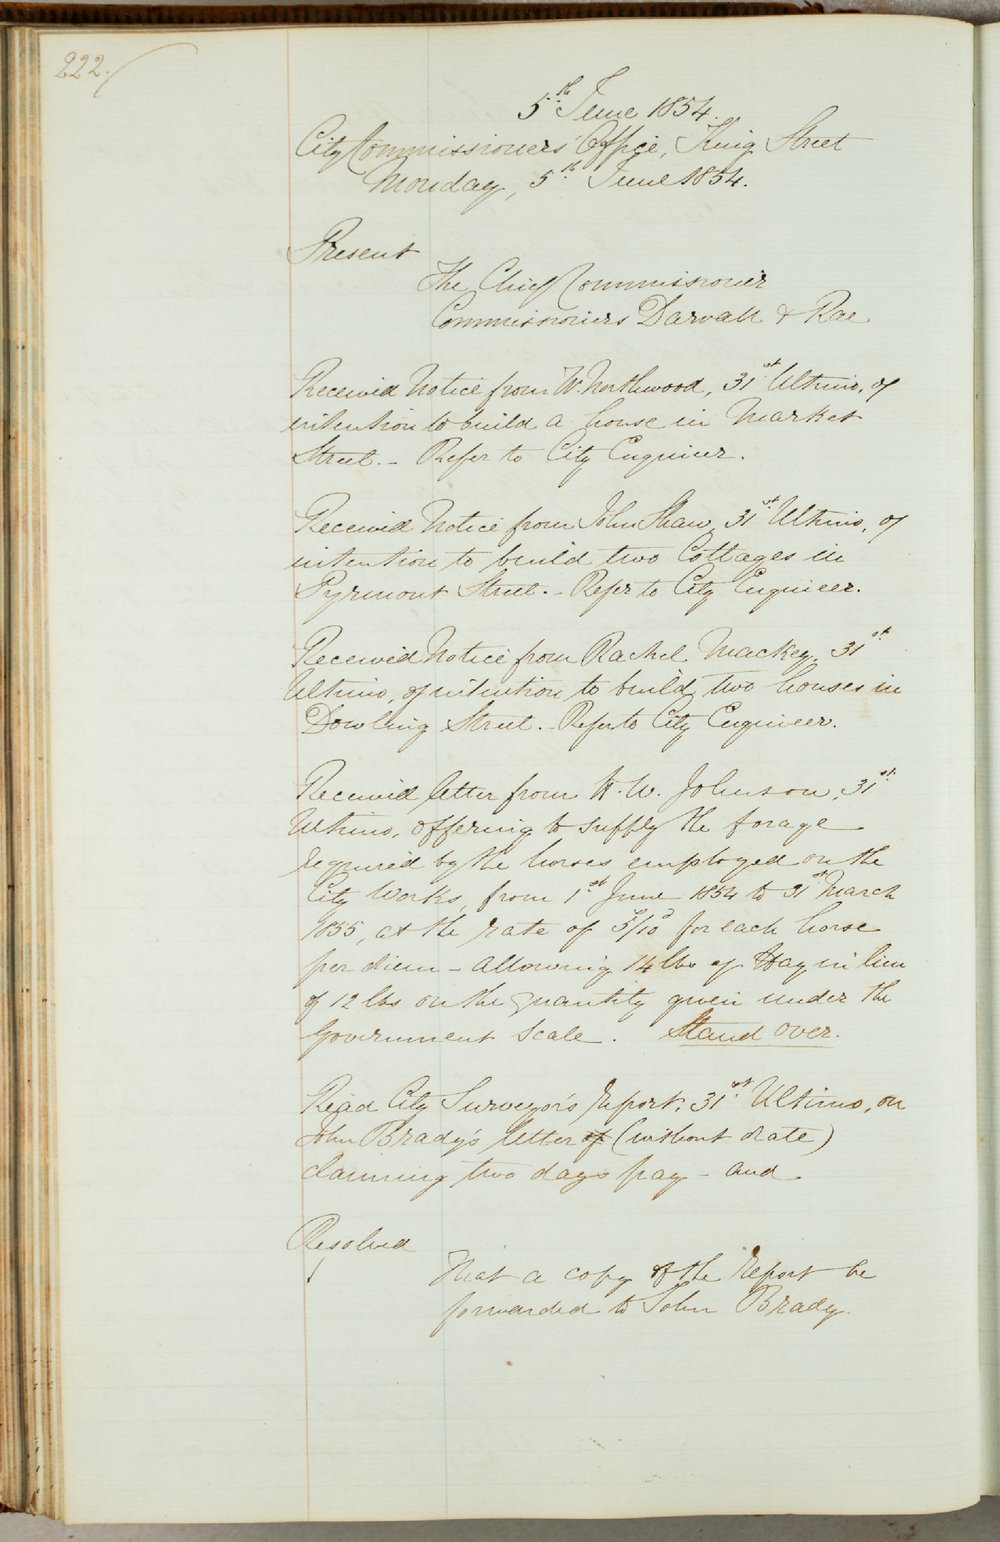 222.
5th June 1854.
City Commissioners' Office, King Street
Monday, 5th June 1854.
Present
The Chief Commissioner
Commissioners Darvall & Rae
Received Notice from W. Northwood, 31st Ultimo, of
intention to build a house in Market
Street. - Refer to City Engineer.
Received Notice from John Shaw, 31st Ultimo, of
intention to build two Cottages in
Pyrmont Street. - Refer to City Engineer.
Received Notice from Rachel Mackey, 31st
Ultimo, of intention to build two houses in
Dowling Street. - Refer to City Engineer.
Received letter from W. Johnson, 31st
Ultimo, offering to supply the forage
required by the horses employed on the
City Works, from 1st June 1854 to 31st March
1855, at the rate of for each horse
per diem - allowing 14 lbs of Hay in lieu
of 12 lbs on the quantity given under the
Government Scale. Stand over.
Read City Surveyor's Report, 31st Ultimo, on
John Brady's letter of (without date)
claiming two days pay - and
Resolved
That a copy of the Report be
forwarded to John Brady.